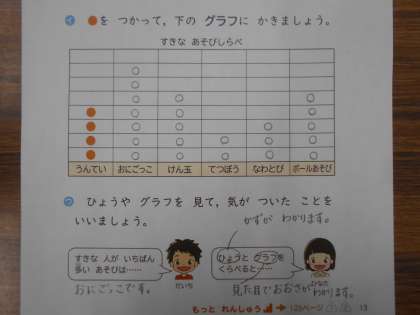 イ ●を つかって，下の グラフに かきましょう。
すきな あそびしらべ
うんてい おにごっこ けん玉 てつぼう なわとび ボールあそび
ウ ひょうや グラフを 見て，気が ついた ことを
いいましょう。
かずが わかります。
すきな 人が いちばん
多い あそびは……
ひょうと グラフを
くらべると……
だいち
ひなた
おにごっこです。
見た目でおおさがわかります。
もっと れんしゅう
125ページ
13